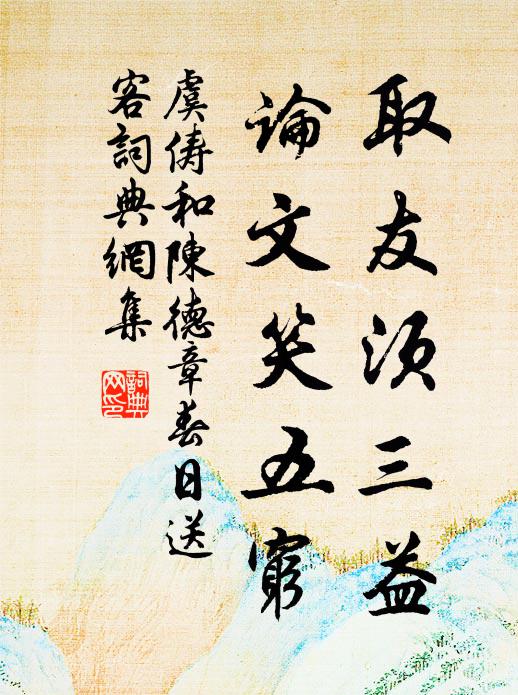 取友須三益
論文笑五窮
虞儔和陳德章春日送
客詞典網集
詞典
网印